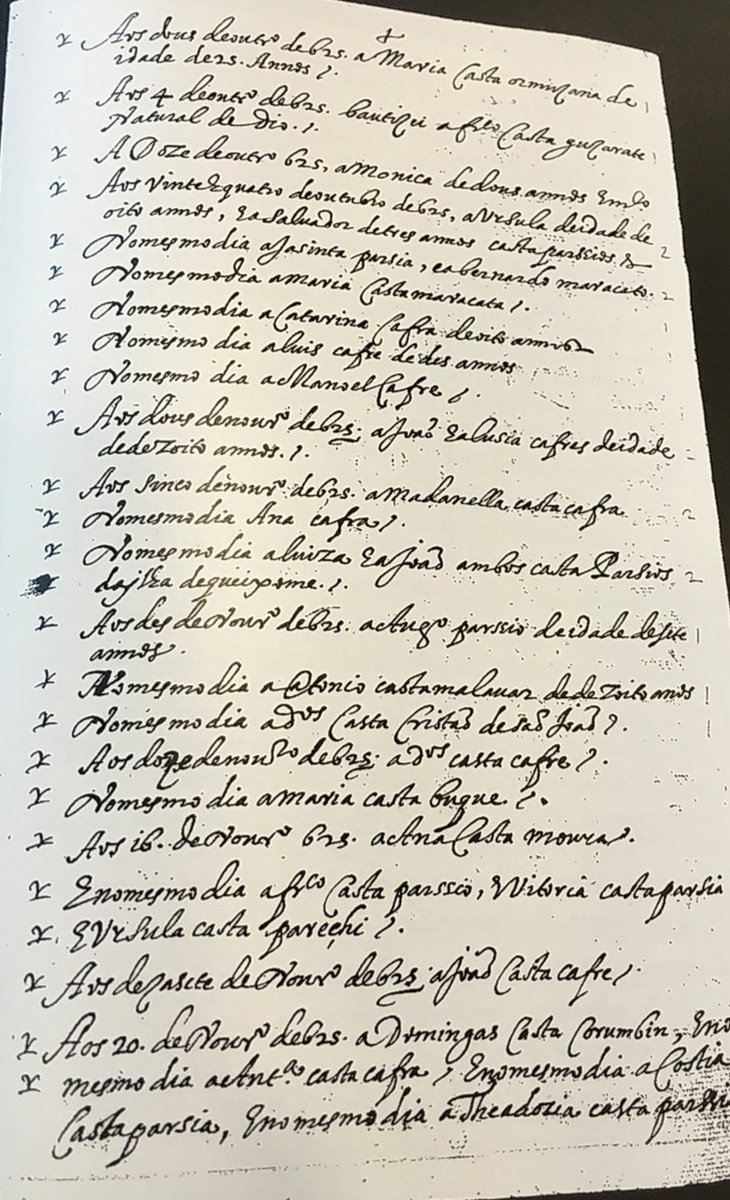 Aos dous de outro de 625. a Maria Casta ormuzana de
idade de 25. Annos /.
Aos 4 de outro de 625. bautizei a frco Casta guzarate
Natural de Dio. /.
A Doze de outro 625, a Monica de dous annos
Aos Vinte Equatro de outubro de 625, a Ursula de idade de
oito annos, Ea Salvador de tres annos casta parssios &
No mesmo dia a Jasinta parsia, e a bernardo maracato.
No mesmo dia a maria Casta maracata /.
No mesmo dia a Catarina Cafra de oito annos
No mesmo dia a luis cafre de des annos
No mesmo dia a Manoel Cafre /.
Aos dous de nouro de 625; a João Ea lusia cafres de idade
de dezoito annos. /.
Aos Sinco de nouro de 625. a Madanella casta cafra
No mesmo dia Ana cafra /.
No mesmo dia a luiza Ea João ambos casta Parsios
da jlha de queixome. /.
Aos des de Nouro de 625: a Augo parssio de idade de sete
annos.
No mesmo dia a Antonio casta malavar de dezoito anos
No mesmo dia a dos Casta Cristão de São João /.
Aos doze de nouro de 625; a dos casta cafre /.
No mesmo dia a Maria casta bugue. /.
Aos 16. de Nouro 625. a Ana Casta moura /.
E no mesmo dia a frco Casta parssco, Vitoria casta parsia
E Ursula casta parechi /.
Aos dezasete de Nouro de 625; a João Casta cafre /.
Aos 20. de Nouro de 625. a Domingas Casta Corumbin, E no
mesmo dia a Anto casta cafra / E no mesmo dia a Costia
Casta parsia, E no mesmo dia a Theadozia casta